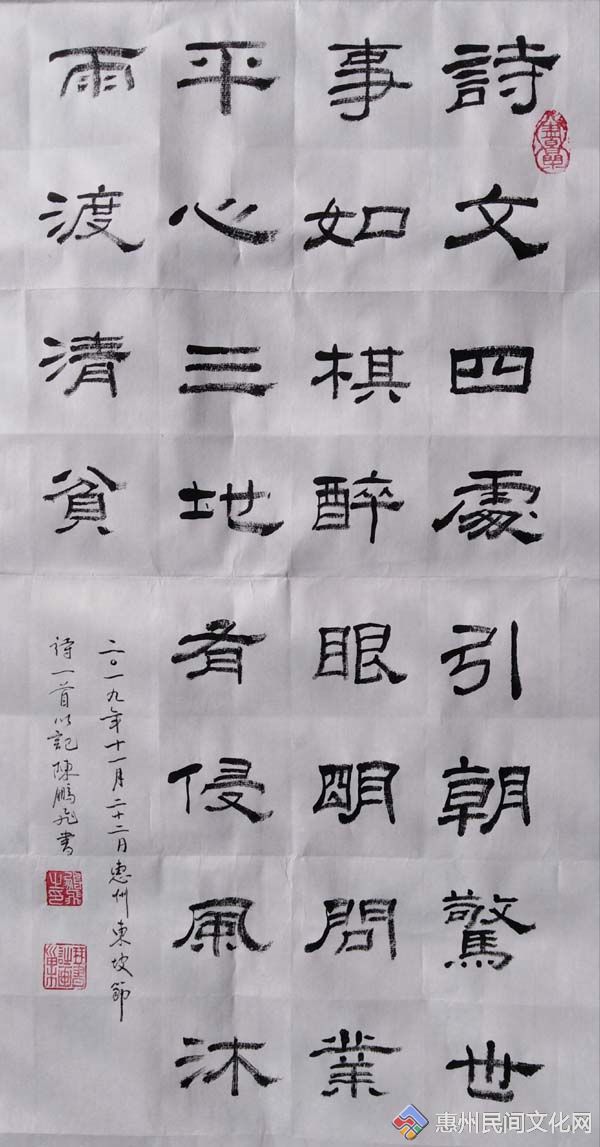 詩文四處引朝驚世
事如棋醉眼明問業
平心三地看侵風沐
雨渡清貧
二〇一九年十一月二十二日惠州東坡節
诗一首以記陳鵬飛書
惠州民间文化网